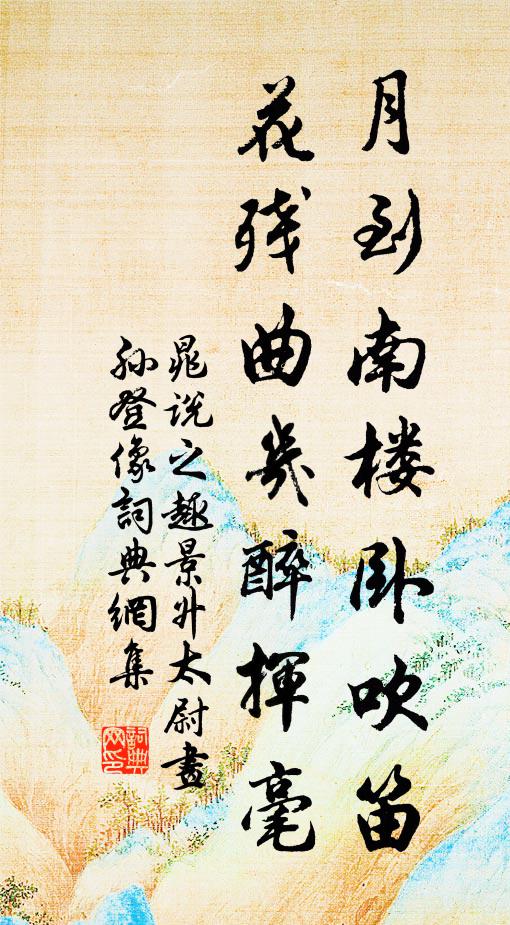 月到南楼卧吹笛
花残曲几醉揮毫
晁说之趣景升太尉畫
孙登像詞典網集
詞典网印